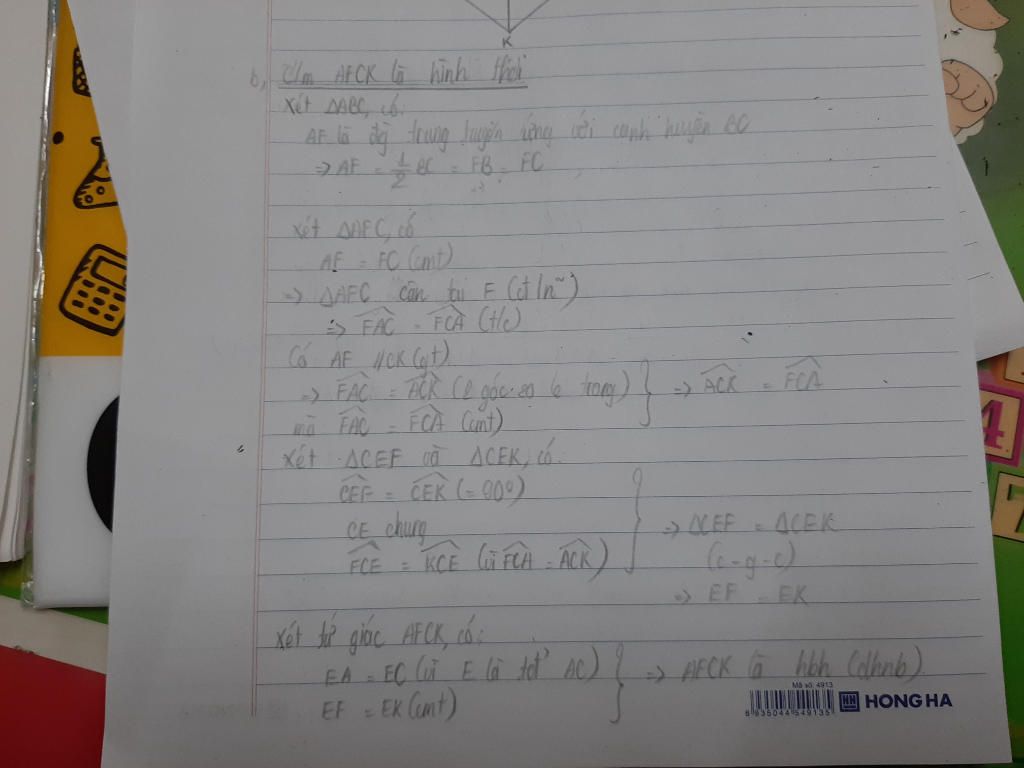 K
b, C/m AFCK là hình thoi
Xét ΔABC, có:
AF là đg trung tuyến ứng với cạnh huyền BC
⇒ AF = 1/2 BC = FB = FC
Xét ΔAFC, có
AF = FC (cmt)
⇒ ΔAFC cân tại F
⇒ FAC = FCA (t/c)
Có AF // CK (gt)
⇒ FAC = ACK (2 góc so le trong) } ⇒ ACK = FCA
mà FAC = FCA (cmt)
Xét ΔCEF và ΔCEK, có:
CEF = CEK (= 90°)
CE chung } ⇒ ΔCEF = ΔCEK
FCE = KCE (vì FCA = ACK) (c-g-c)
⇒ EF = EK
Xét tứ giác AFCK, có:
EA = EC (vì E là tđ' AC) } ⇒ AFCK là hbh (dhnb)
EF = EK (cmt)
Mã số: 4913
8 935044 549135
HH HONG HA
4
7